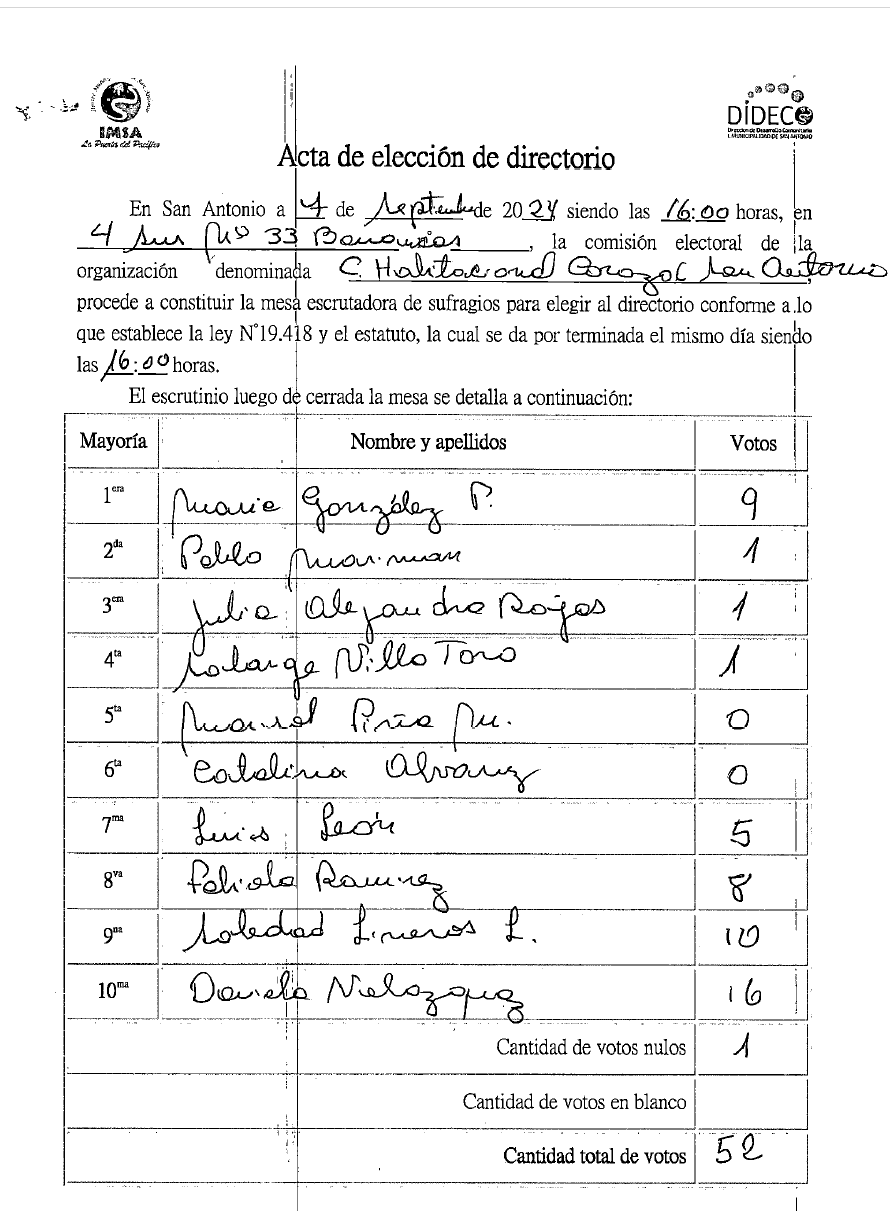 IMSA
La Puerta del Pacífico
DIDECO
Dirección de Desarrollo Comunitario
I. MUNICIPALIDAD DE SAN ANTONIO
Acta de elección de directorio
En San Antonio a 4 de Septiembre de 2024 siendo las 16:00 horas, en
4 Sur Nº 33 , la comisión electoral de la
organización denominada C. Habitacional San Antonio
procede a constituir la mesa escrutadora de sufragios para elegir al directorio conforme a lo
que establece la ley N°19.418 y el estatuto, la cual se da por terminada el mismo día siendo
las 16:00 horas.
El escrutinio luego de cerrada la mesa se detalla a continuación:
Mayoría Nombre y apellidos Votos
1era Maria González P. 9
2da Pablo Mariman 1
3era Julia Alejandra Rojas 1
4ta Solange Villo Toro 1
5ta Marisol Piña M. 0
6ta Catalina Alvarez 0
7ma Luis León 5
8va Fabiola Ramirez 8
9na Soledad Lineros L. 10
10ma Daniela Velazquez 16
Cantidad de votos nulos 1
Cantidad de votos en blanco
Cantidad total de votos 52